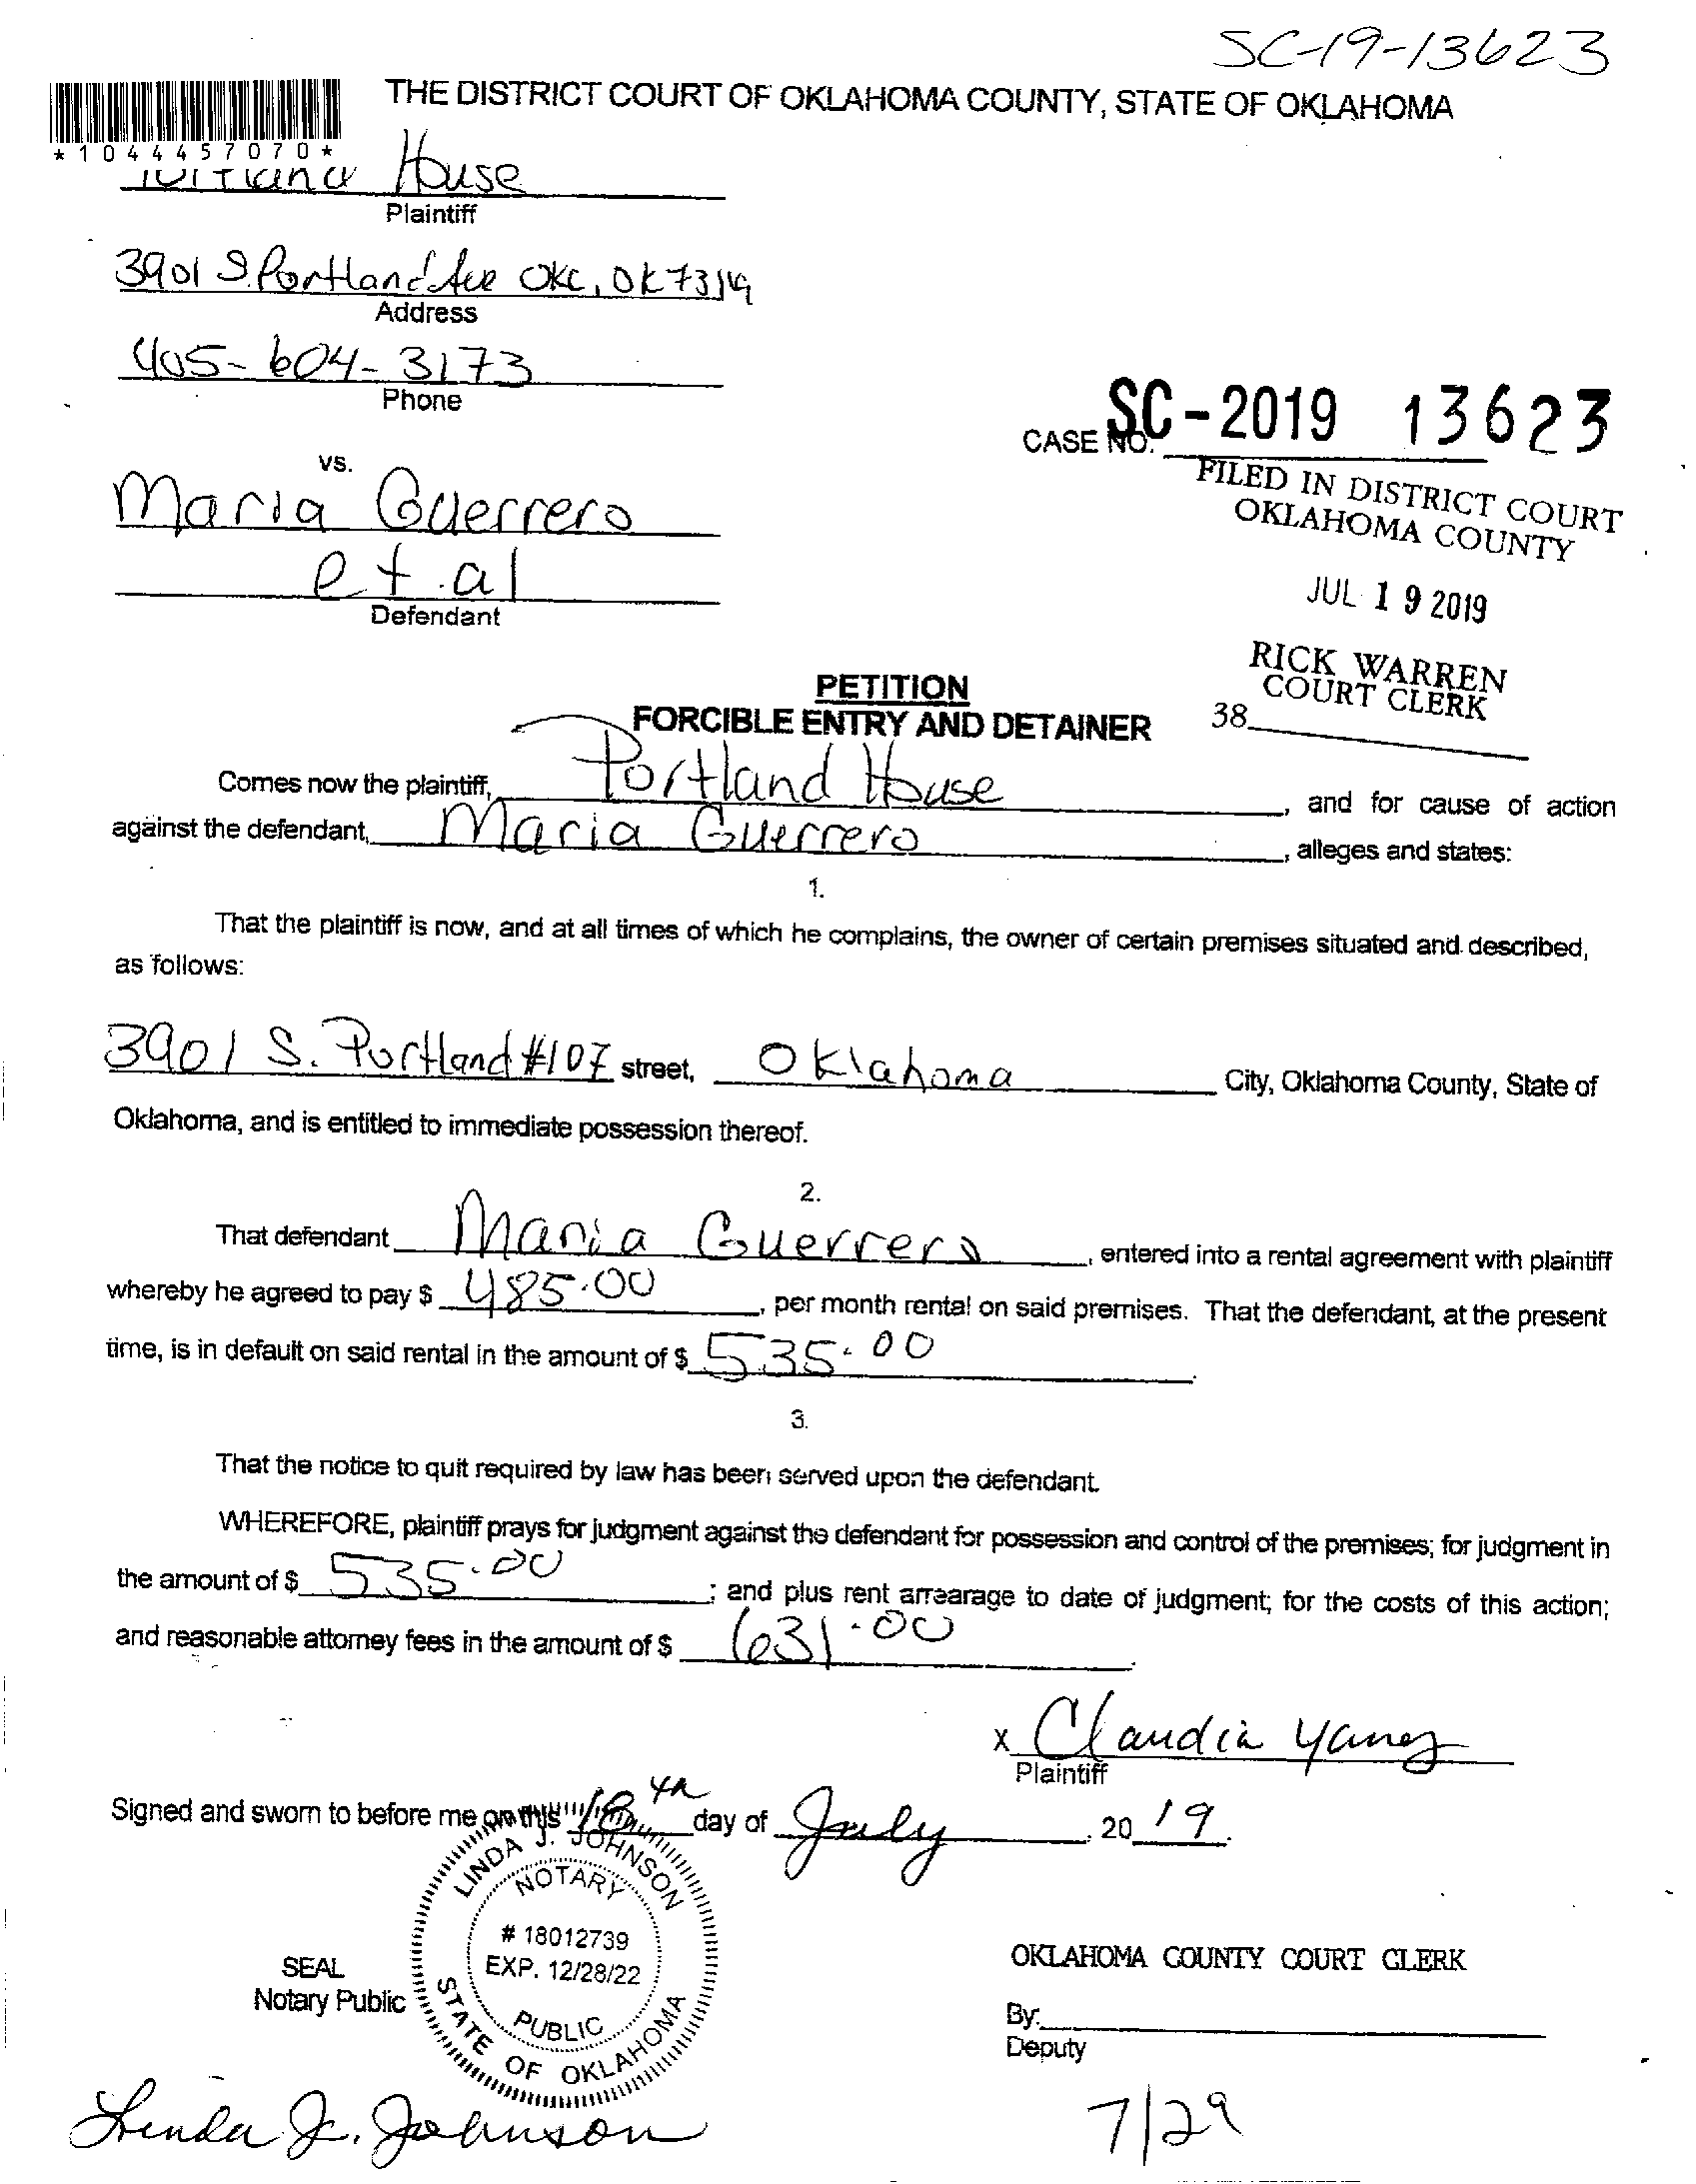 SC-19-13623
THE DISTRICT COURT OF OKLAHOMA COUNTY, STATE OF OKLAHOMA
*1044457070*
Portland House
Plaintiff
3901 S. Portland Ave OKC, OK 73119
Address
405-604-3173
Phone
CASE NO. SC-2019 13623
vs.
FILED IN DISTRICT COURT
OKLAHOMA COUNTY
Maria Guerrero
et.al
Defendant
JUL 19 2019
RICK WARREN
COURT CLERK
38
PETITION
FORCIBLE ENTRY AND DETAINER
Comes now the plaintiff, Portland House, and for cause of action
against the defendant, Maria Guerrero, alleges and states:
1.
That the plaintiff is now, and at all times of which he complains, the owner of certain premises situated and described,
as follows:
3901 S. Portland #107 street, Oklahoma City, Oklahoma County, State of
Oklahoma, and is entitled to immediate possession thereof.
2.
That defendant Maria Guerrero, entered into a rental agreement with plaintiff
whereby he agreed to pay $ 485.00, per month rental on said premises. That the defendant, at the present
time, is in default on said rental in the amount of $ 535.00.
3.
That the notice to quit required by law has been served upon the defendant.
WHEREFORE, plaintiff prays for judgment against the defendant for possession and control of the premises; for judgment in
the amount of $ 535.00; and plus rent arrearage to date of judgment; for the costs of this action;
and reasonable attorney fees in the amount of $ 631.00.
x Claudia Yanez
Plaintiff
Signed and sworn to before me on this 18th day of July, 20 19.
LINDA J. JOHNSON
NOTARY
# 18012739
EXP. 12/28/22
PUBLIC
STATE OF OKLAHOMA
SEAL
Notary Public
OKLAHOMA COUNTY COURT CLERK
By:
Deputy
Linda J. Johnson
7/29